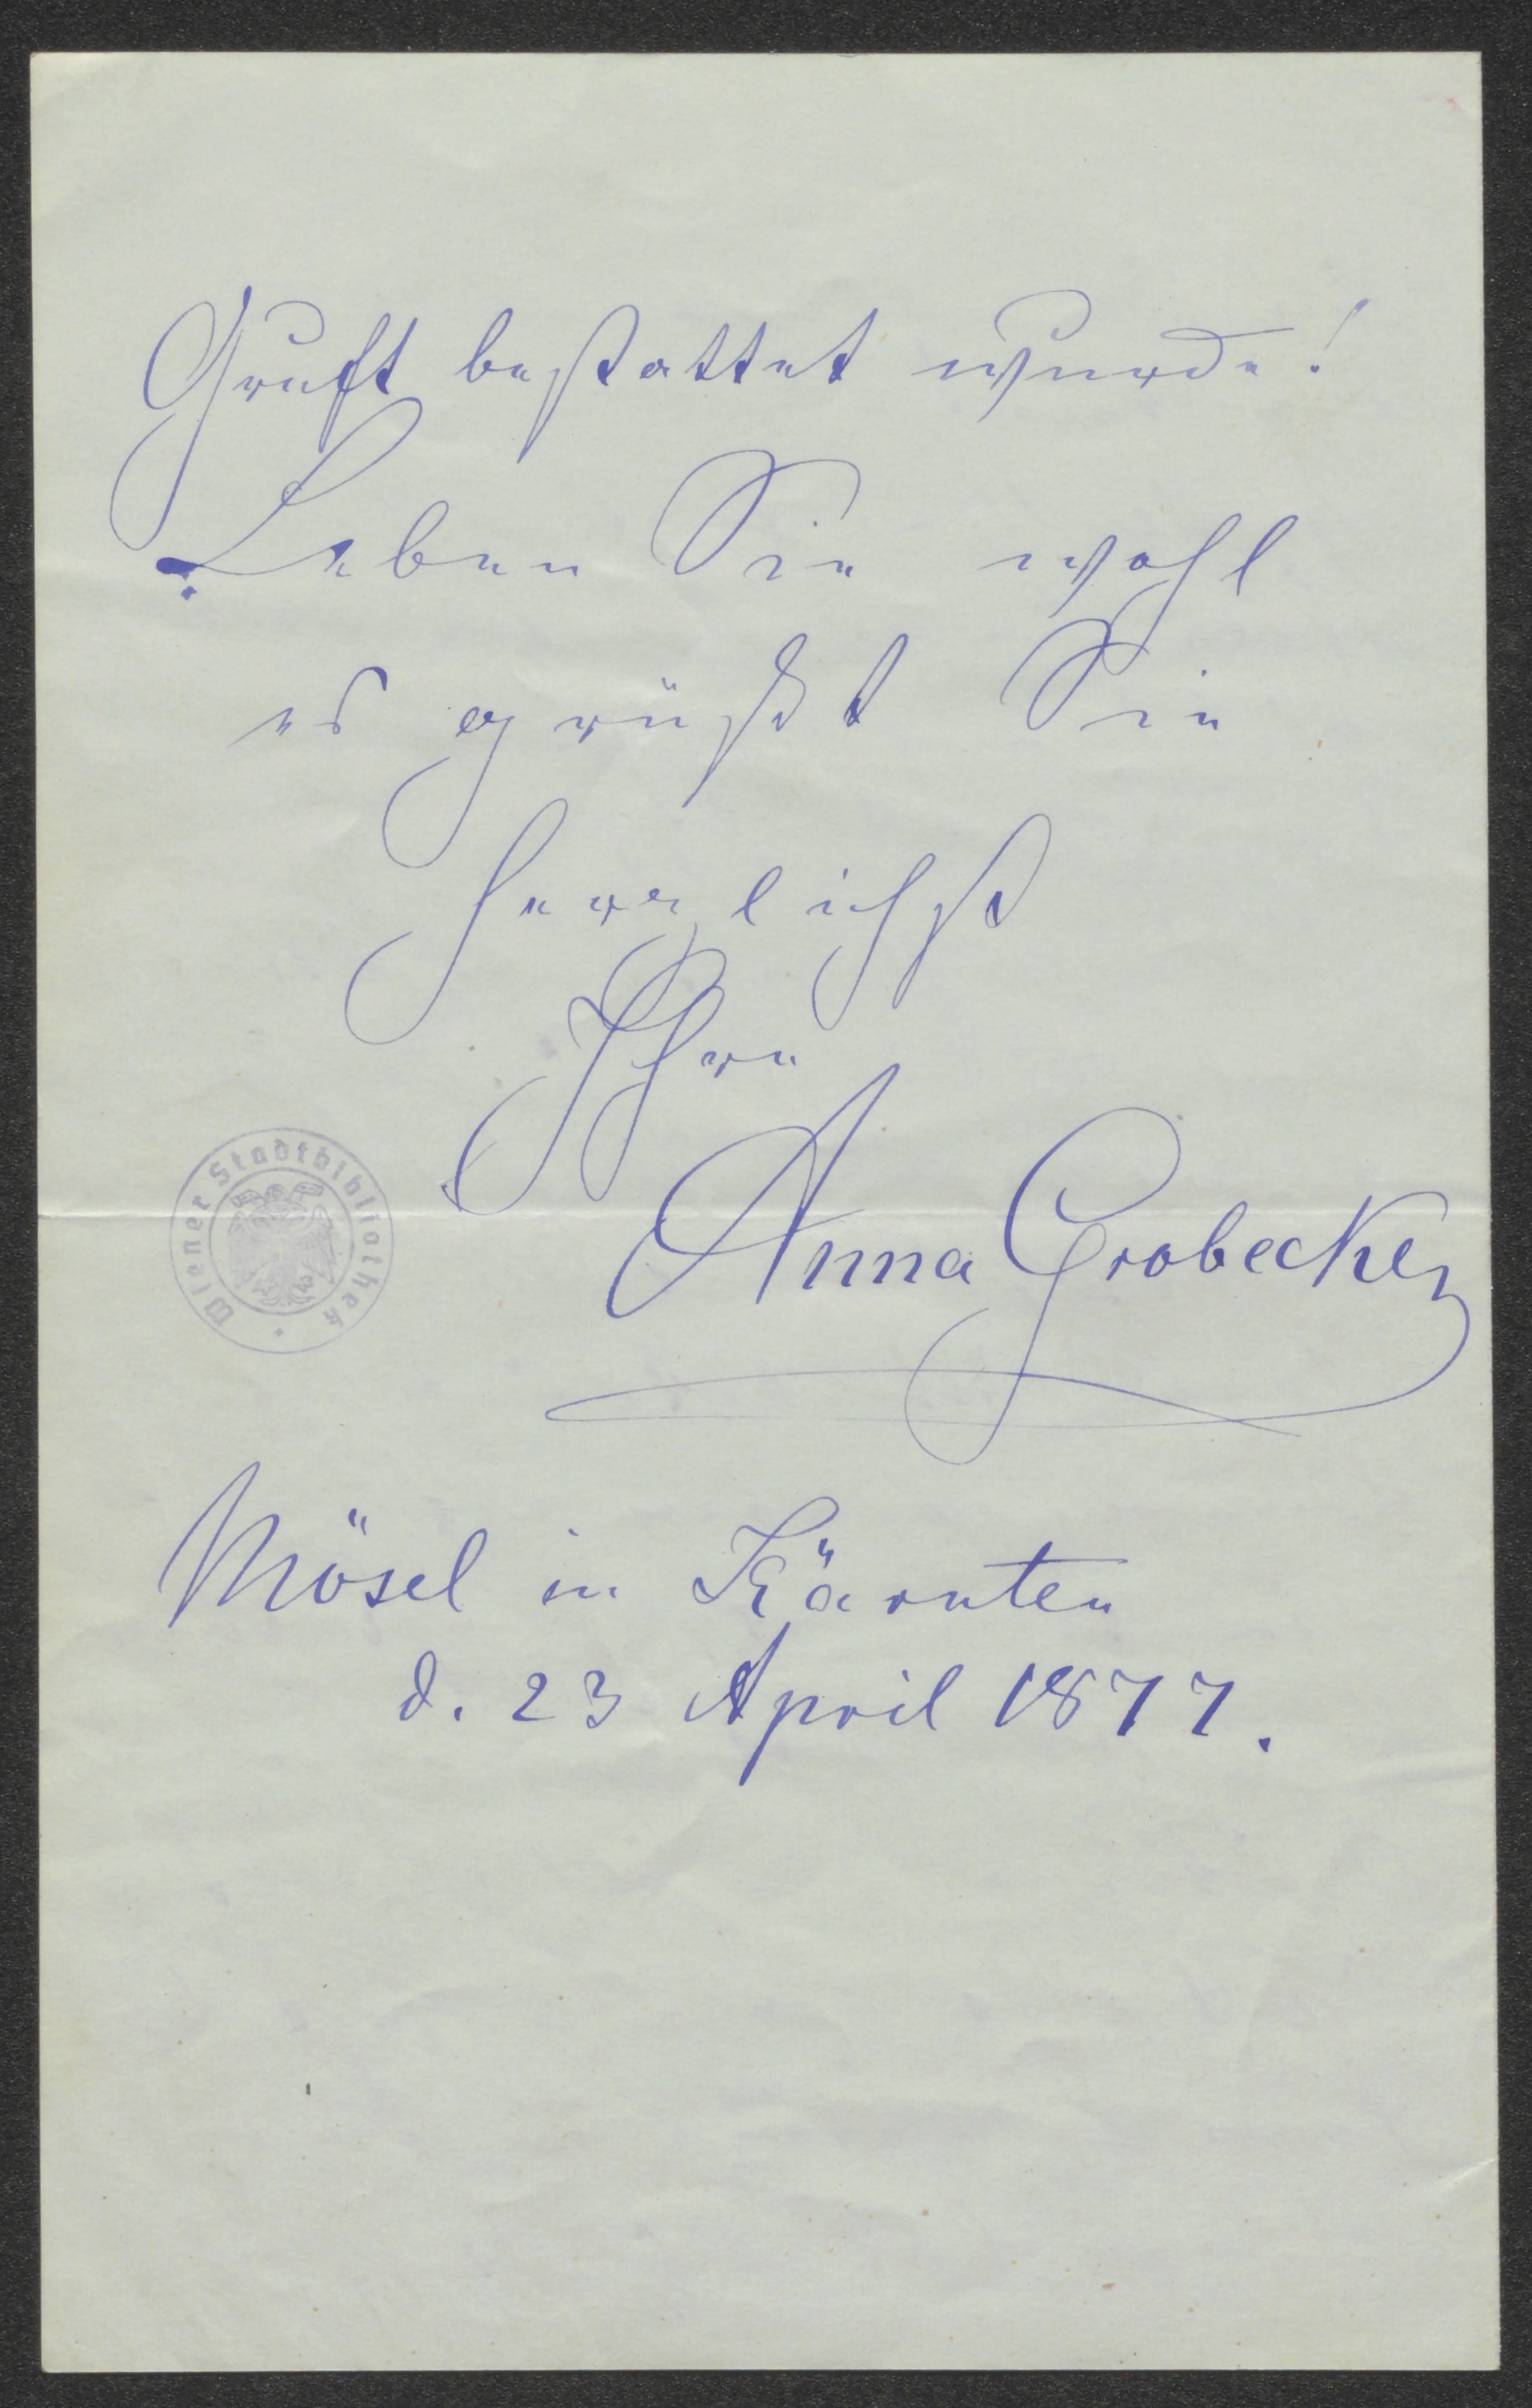 Gruft bestattet wurde!
Leben Sie wohl
es grüßt Sie
herzlichst
Ihre
Anna Grobecker
Wiener Stadtbibliothek
Mösel in Kärnten
d. 23 April 1877.